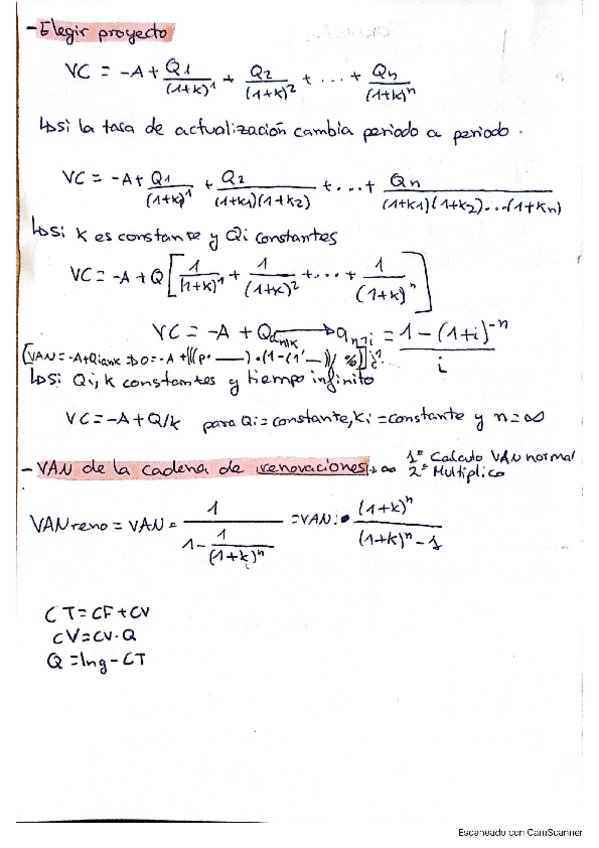 - Elegir proyecto
VC = -A + Q1/(1+K)^1 + Q2/(1+K)^2 + ... + Qn/(1+K)^n
↳ si la tasa de actualización cambia periodo a periodo.
VC = -A + Q1/(1+K)^1 + Q2/(1+K1)(1+K2) + ... + Qn/(1+K1)(1+K2)...(1+Kn)
↳ si K es constante y Qi constantes
VC = -A + Q[1/(1+K)^1 + 1/(1+K)^2 + ... + 1/(1+K)^n]
VC = -A + Q a n¬K → a n¬i = 1-(1+i)^-n / i
[VAN = -A+Q
↳ si Qi, K constantes y tiempo infinito
VC = -A + Q/K para Qi = constante, Ki = constante y n = ∞
- VAN de la cadena de renovaciones → ∞ 1º Calculo VAN normal
2º Multiplico
VAN reno = VAN · 1/(1 - 1/(1+K)^n) = VAN · (1+K)^n/((1+K)^n - 1)
CT = CF + CV
CV = CV · Q
Q = Ing - CT
Escaneado con CamScanner